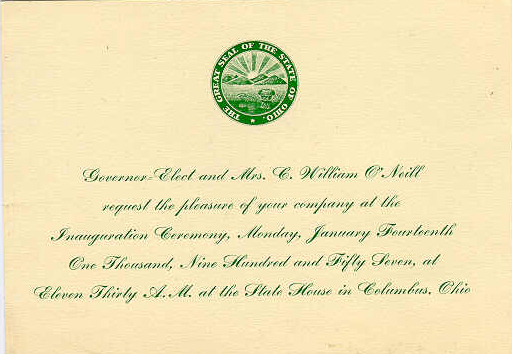 THE GREAT SEAL OF THE STATE OF OHIO.
Governor-Elect and Mrs. C. William O'Neill
request the pleasure of your company at the
Inauguration Ceremony, Monday, January Fourteenth
One Thousand, Nine Hundred and Fifty Seven, at
Eleven Thirty A.M. at the State House in Columbus, Ohio